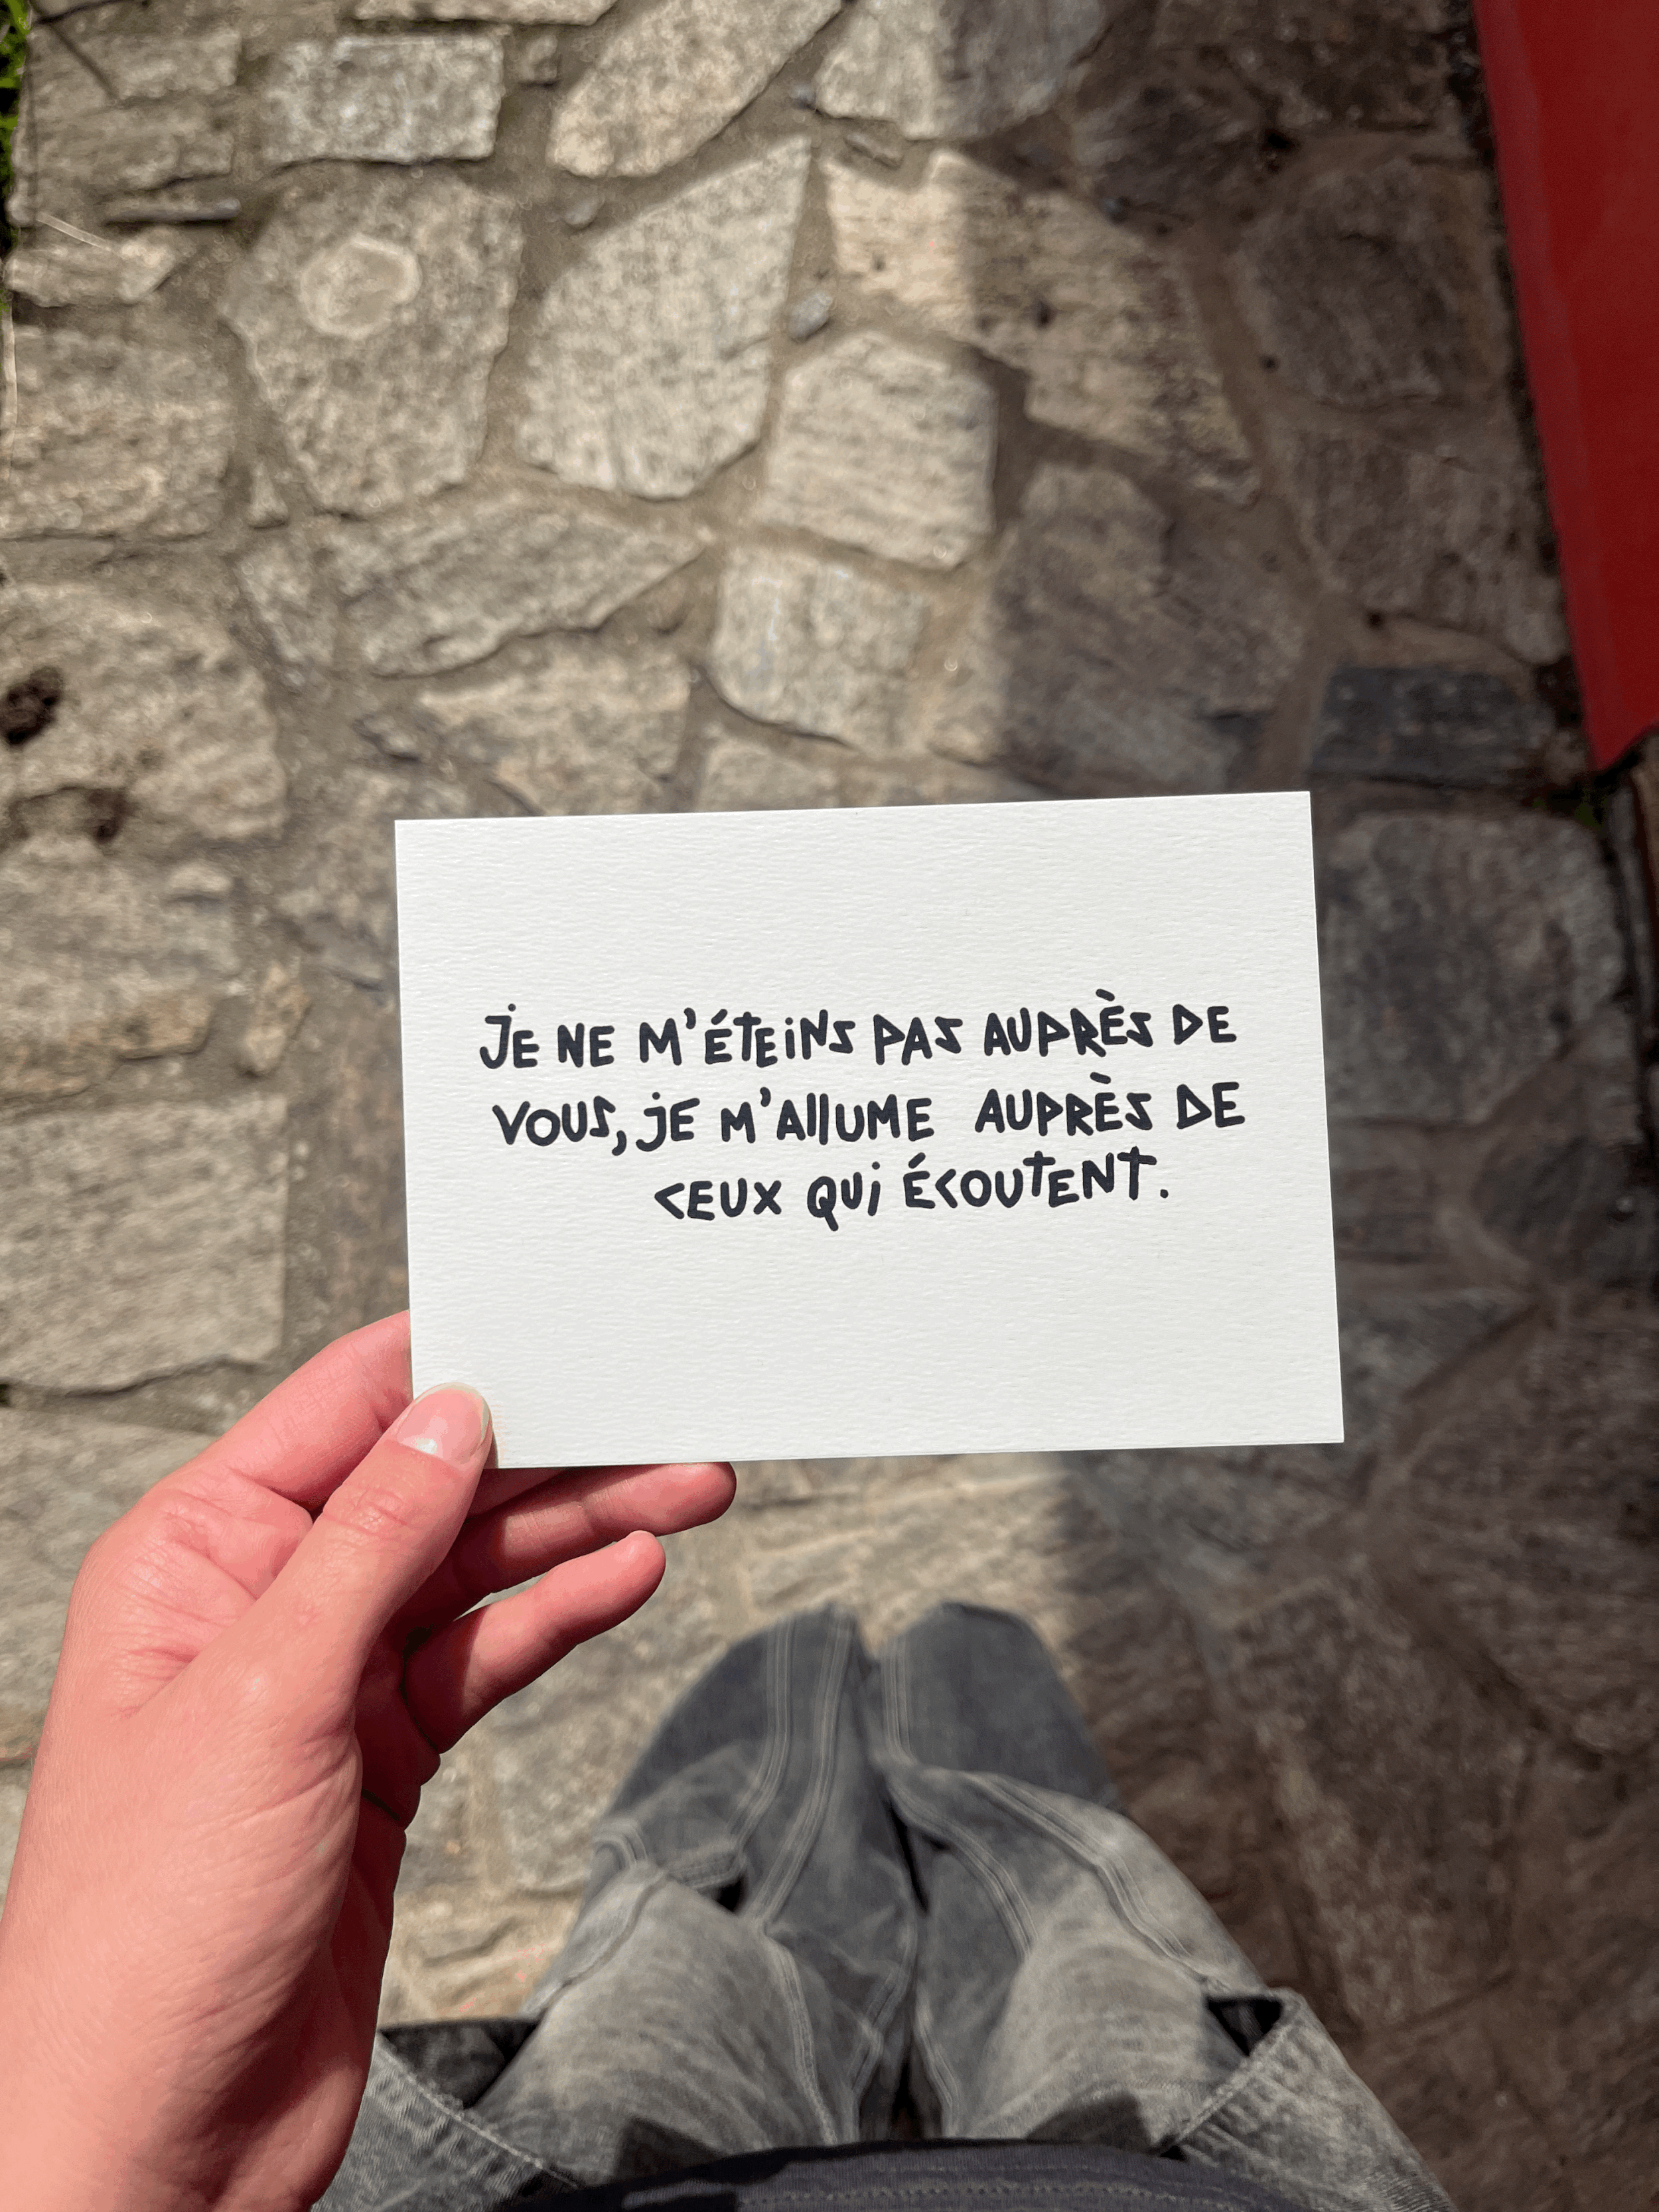 JE NE M'ÉTEINS PAS AUPRÈS DE
VOUS, JE M'ALLUME AUPRÈS DE
CEUX QUI ÉCOUTENT.